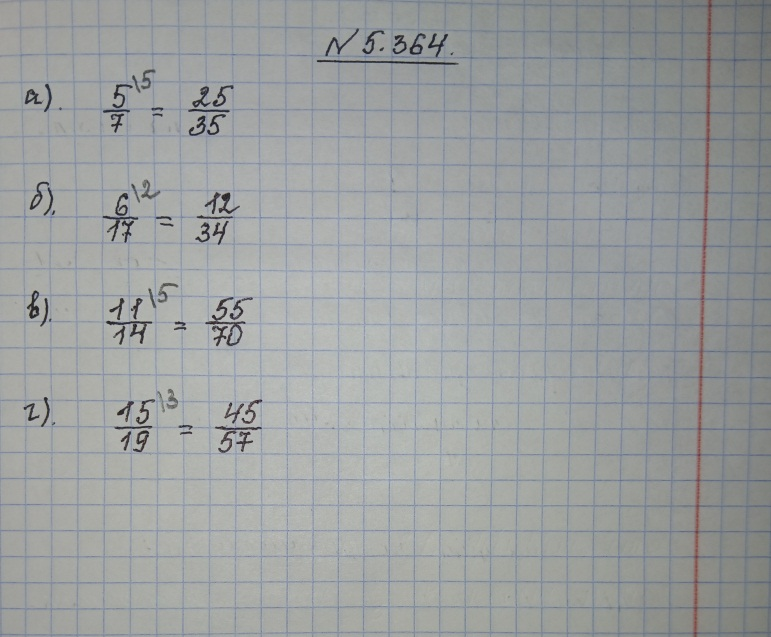 № 5.364.
а). 5/7 \5 = 25/35
б). 6/17 \2 = 12/34
в). 11/14 \5 = 55/70
г). 15/19 \3 = 45/57